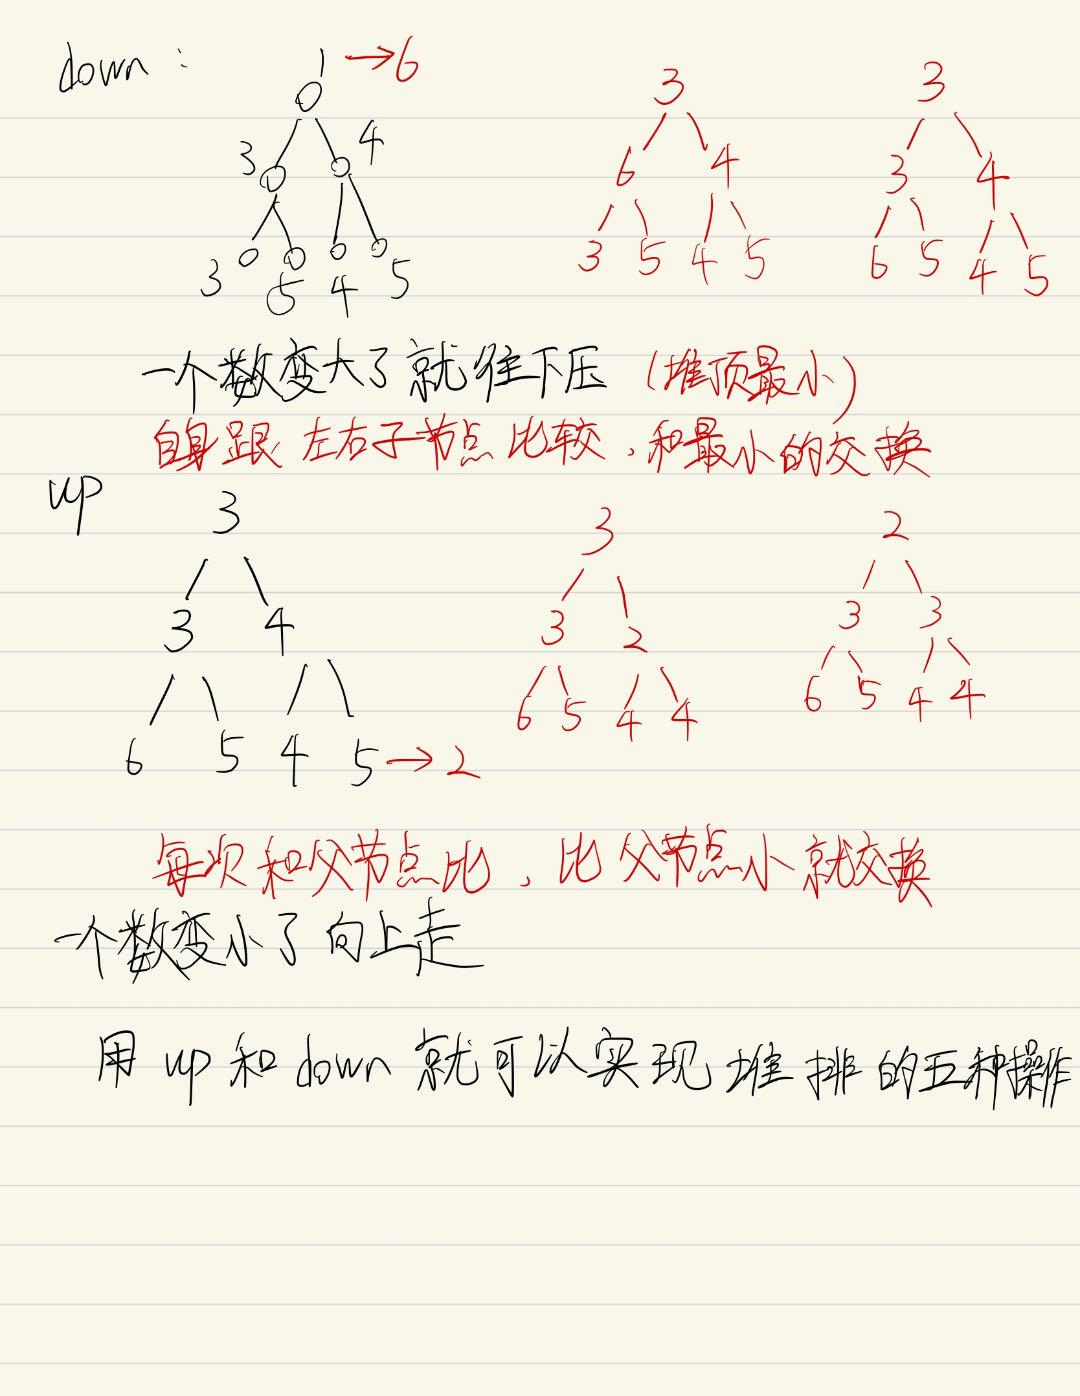 down :
1 →6
3 4
3 5 4 5
3
6 4
3 5 4 5
3
3 4
6 5 4 5
一个数变大了就往下压 (堆顶最小)
自身跟左右子节点比较,和最小的交换
up
3
3 4
6 5 4 5→2
3
3 2
6 5 4 4
2
3 3
6 5 4 4
每次和父节点比,比父节点小就交换
一个数变小了向上走
用up和down就可以实现堆排的五种操作